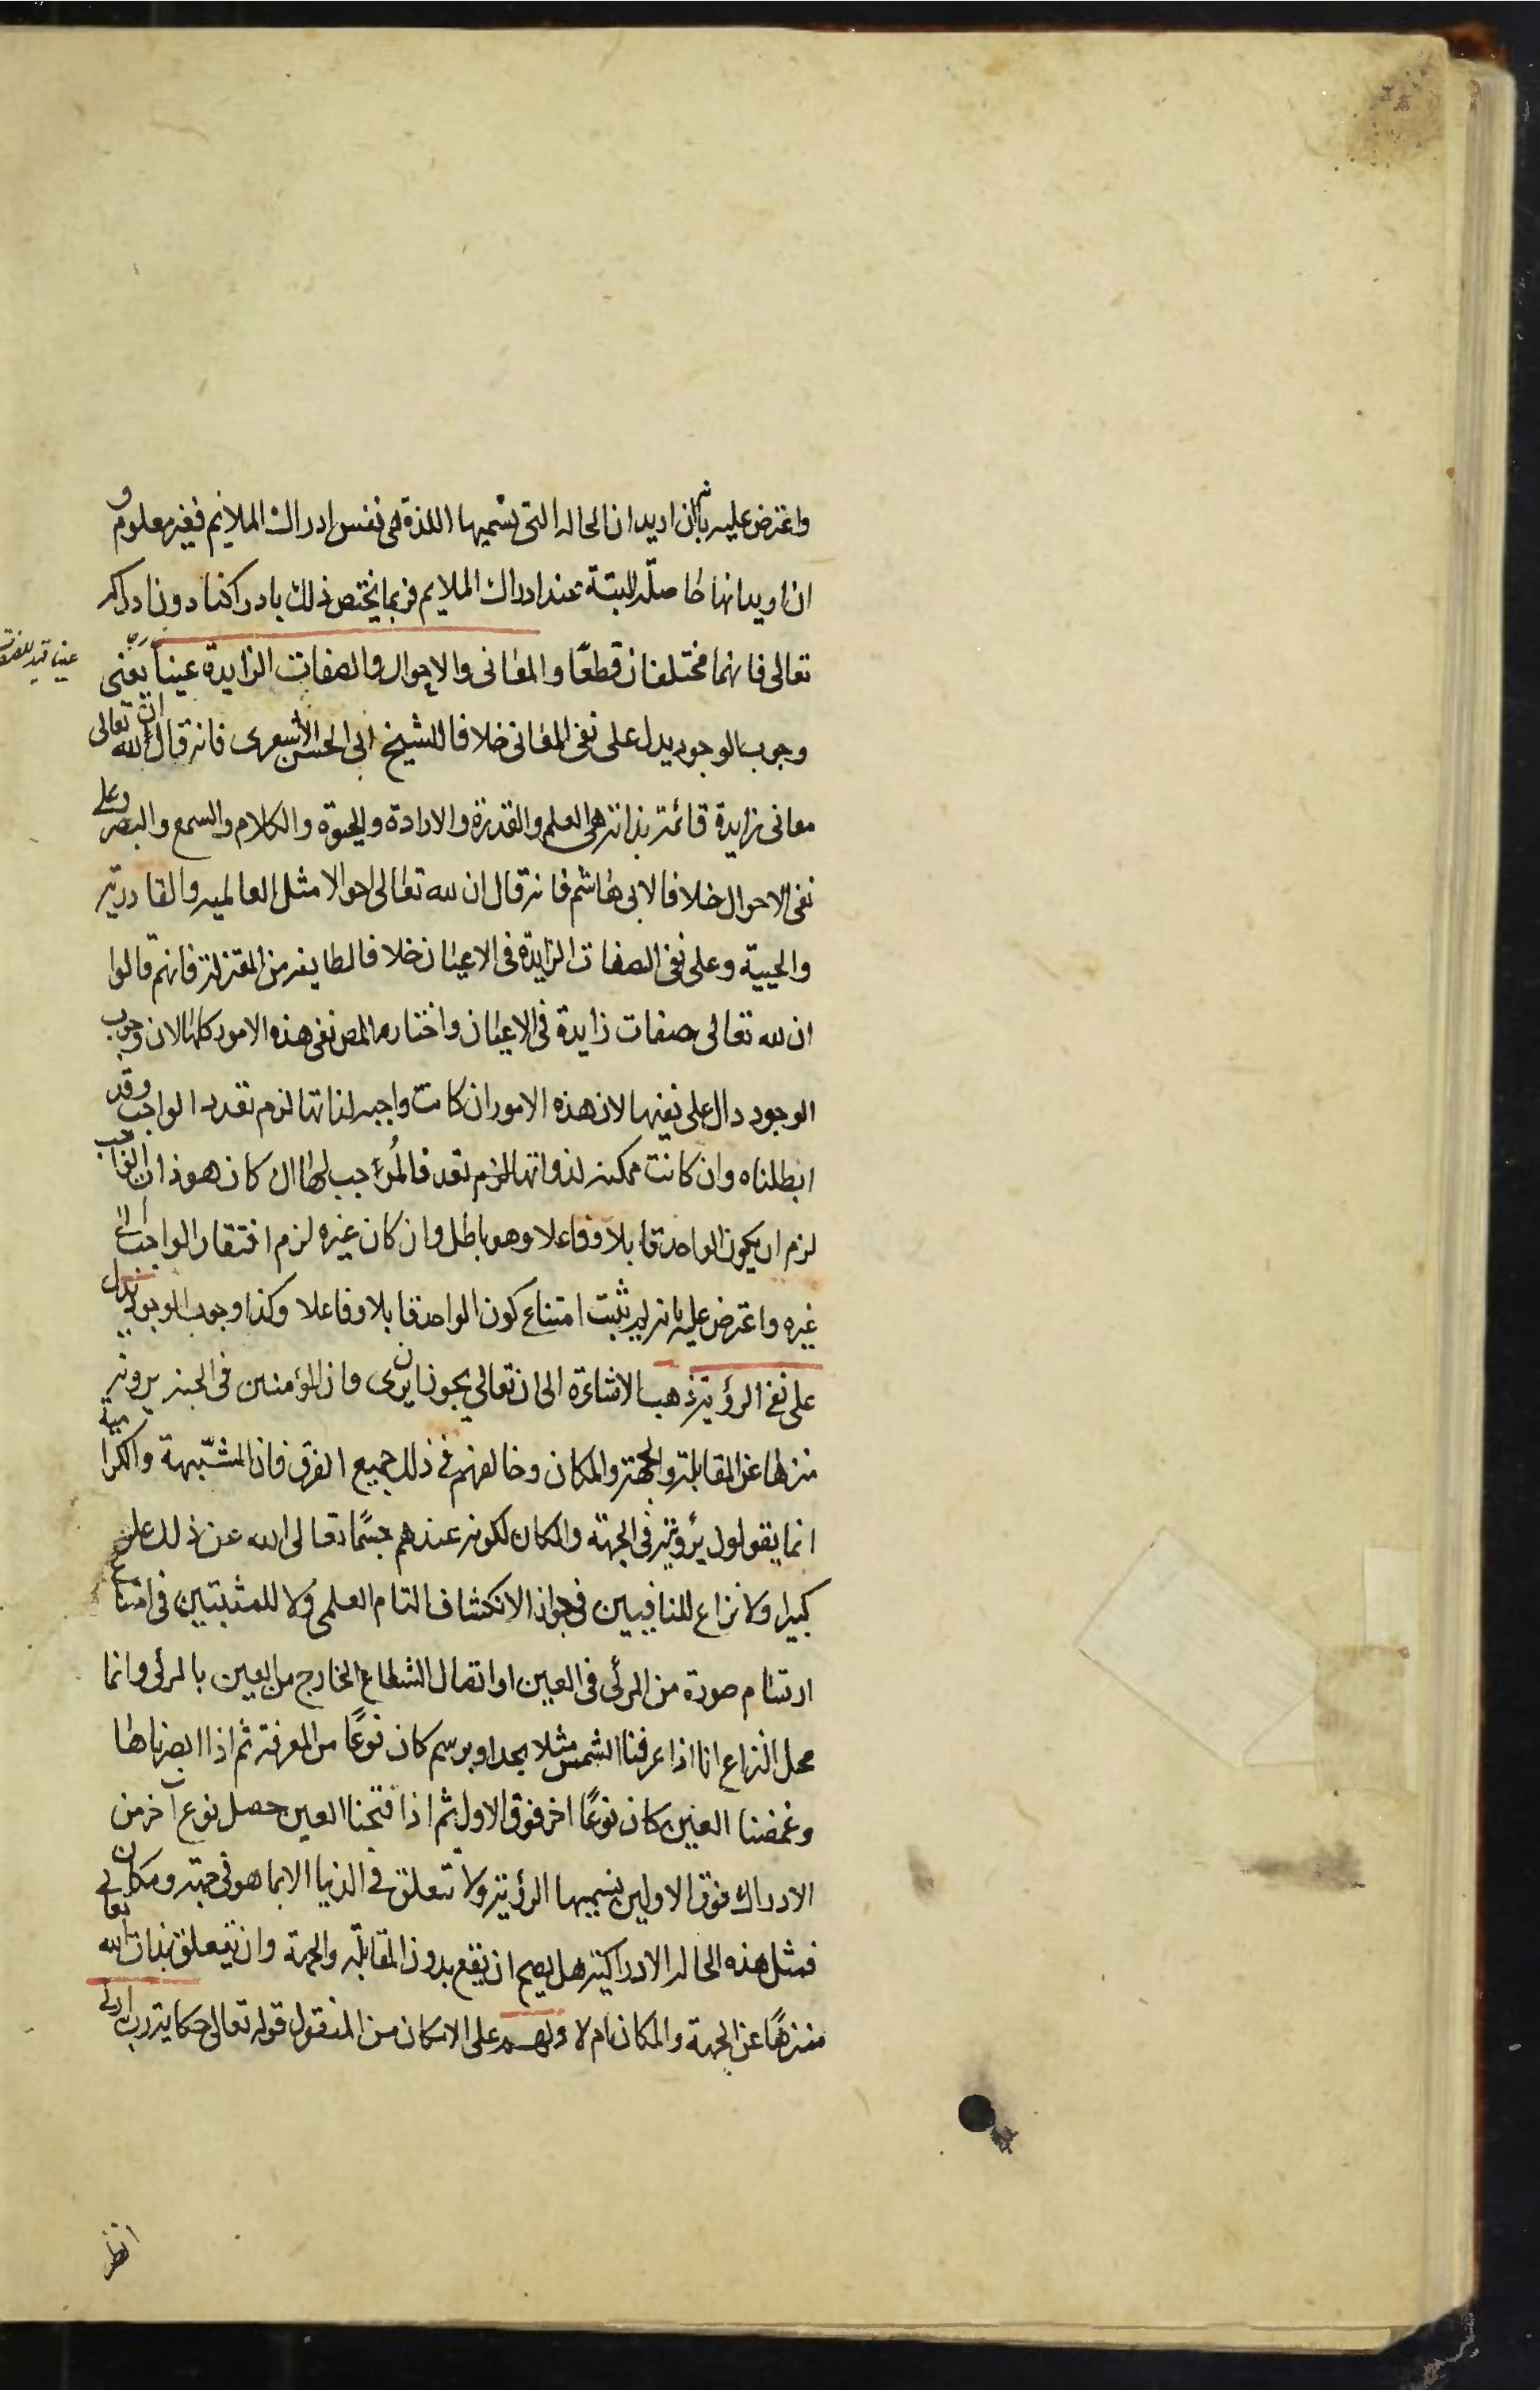 واعترض عليه بانه ان اريد ان الحالة التي نسميها اللذة هي نفس ادراك الملايم فغير معلوم و
ان اريد انها حاصلة البتة عند ادراك الملايم فربما يختص ذلك بادراكنا دون ادراكه
تعالى فانهما مختلفان قطعًا والمعانى والاحوال والصفات الزايدة عينا يعنى
عينا قيد للصفات
وجوب الوجود يدل على نفى المعانى خلافا للشيخ ابى الحسن الاشعرى فانه قال ان لله تعالى
معانى زايدة قائمة بذاته هى العلم والقدرة والارادة والحيوة والكلام والسمع والبصر وعلى
نفى الاحوال خلافا لابى هاشم فانه قال ان لله تعالى احوالا مثل العالمية والقادرية
والحيية وعلى نفى الصفات الزايدة فى الاعيان خلافا لطايفة من المعتزلة فانهم قالوا
ان لله تعالى صفات زايدة فى الاعيان واختار المص نفى هذه الامور كلها لان وجوب
الوجود دال على نفيها لان هذه الامور ان كانت واجبة لذاتها لزم تعدد الواجب وقد
ابطلناه وان كانت ممكنة لذواتها لزم تعدد فالموجب لها ان كان هو ذات الواجب
لزم ان يكون الواحد قابلا وفاعلا وهو باطل وان كان غيره لزم افتقار الواجب الى
غيره واعترض عليه بانه لم يثبت امتناع كون الواحد قابلا وفاعلا وكذا وجوب الوجود يدل
على نفى الرؤية ذهب الاشاعرة الى ان تعالى يجوز ان يرى وان المؤمنين فى الجنة يرونه
منزها عن المقابلة والجهة والمكان وخالفهم فى ذلك جميع الفرق فان المشبّهة والكرامية
انما يقولون برؤيته فى الجهة والمكان لكونه عندهم جسمًا تعالى الله عن ذلك علوا
كبيرا ولا نزاع للنافيين فى جواز الانكشاف التام العلمى ولا للمثبتين فى امتناع
ارتسام صورة من المرئى فى العين او اتصال الشعاع الخارج من العين بالمرئى وانما
محل النزاع انا اذا عرفنا الشمس مثلا بحد او برسم كان نوعًا من المعرفة ثم اذا ابصرناها
وغمضنا العين كان نوعًا اخر فوق الاول ثم اذا فتحنا العين حصل نوع آخر من
الادراك فوق الاولين نسميها الرؤية ولا تتعلق فى الدنيا الا بما هو فى جهة ومكان
فمثل هذه الحالة الادراكية هل يصح ان يقع بدون المقابلة والجهة وان يتعلق بذات الله تعالى
منزهًا عن الجهة والمكان ام لا ولهم على الامكان من المنقول قوله تعالى حكاية رب ارنى
انظر